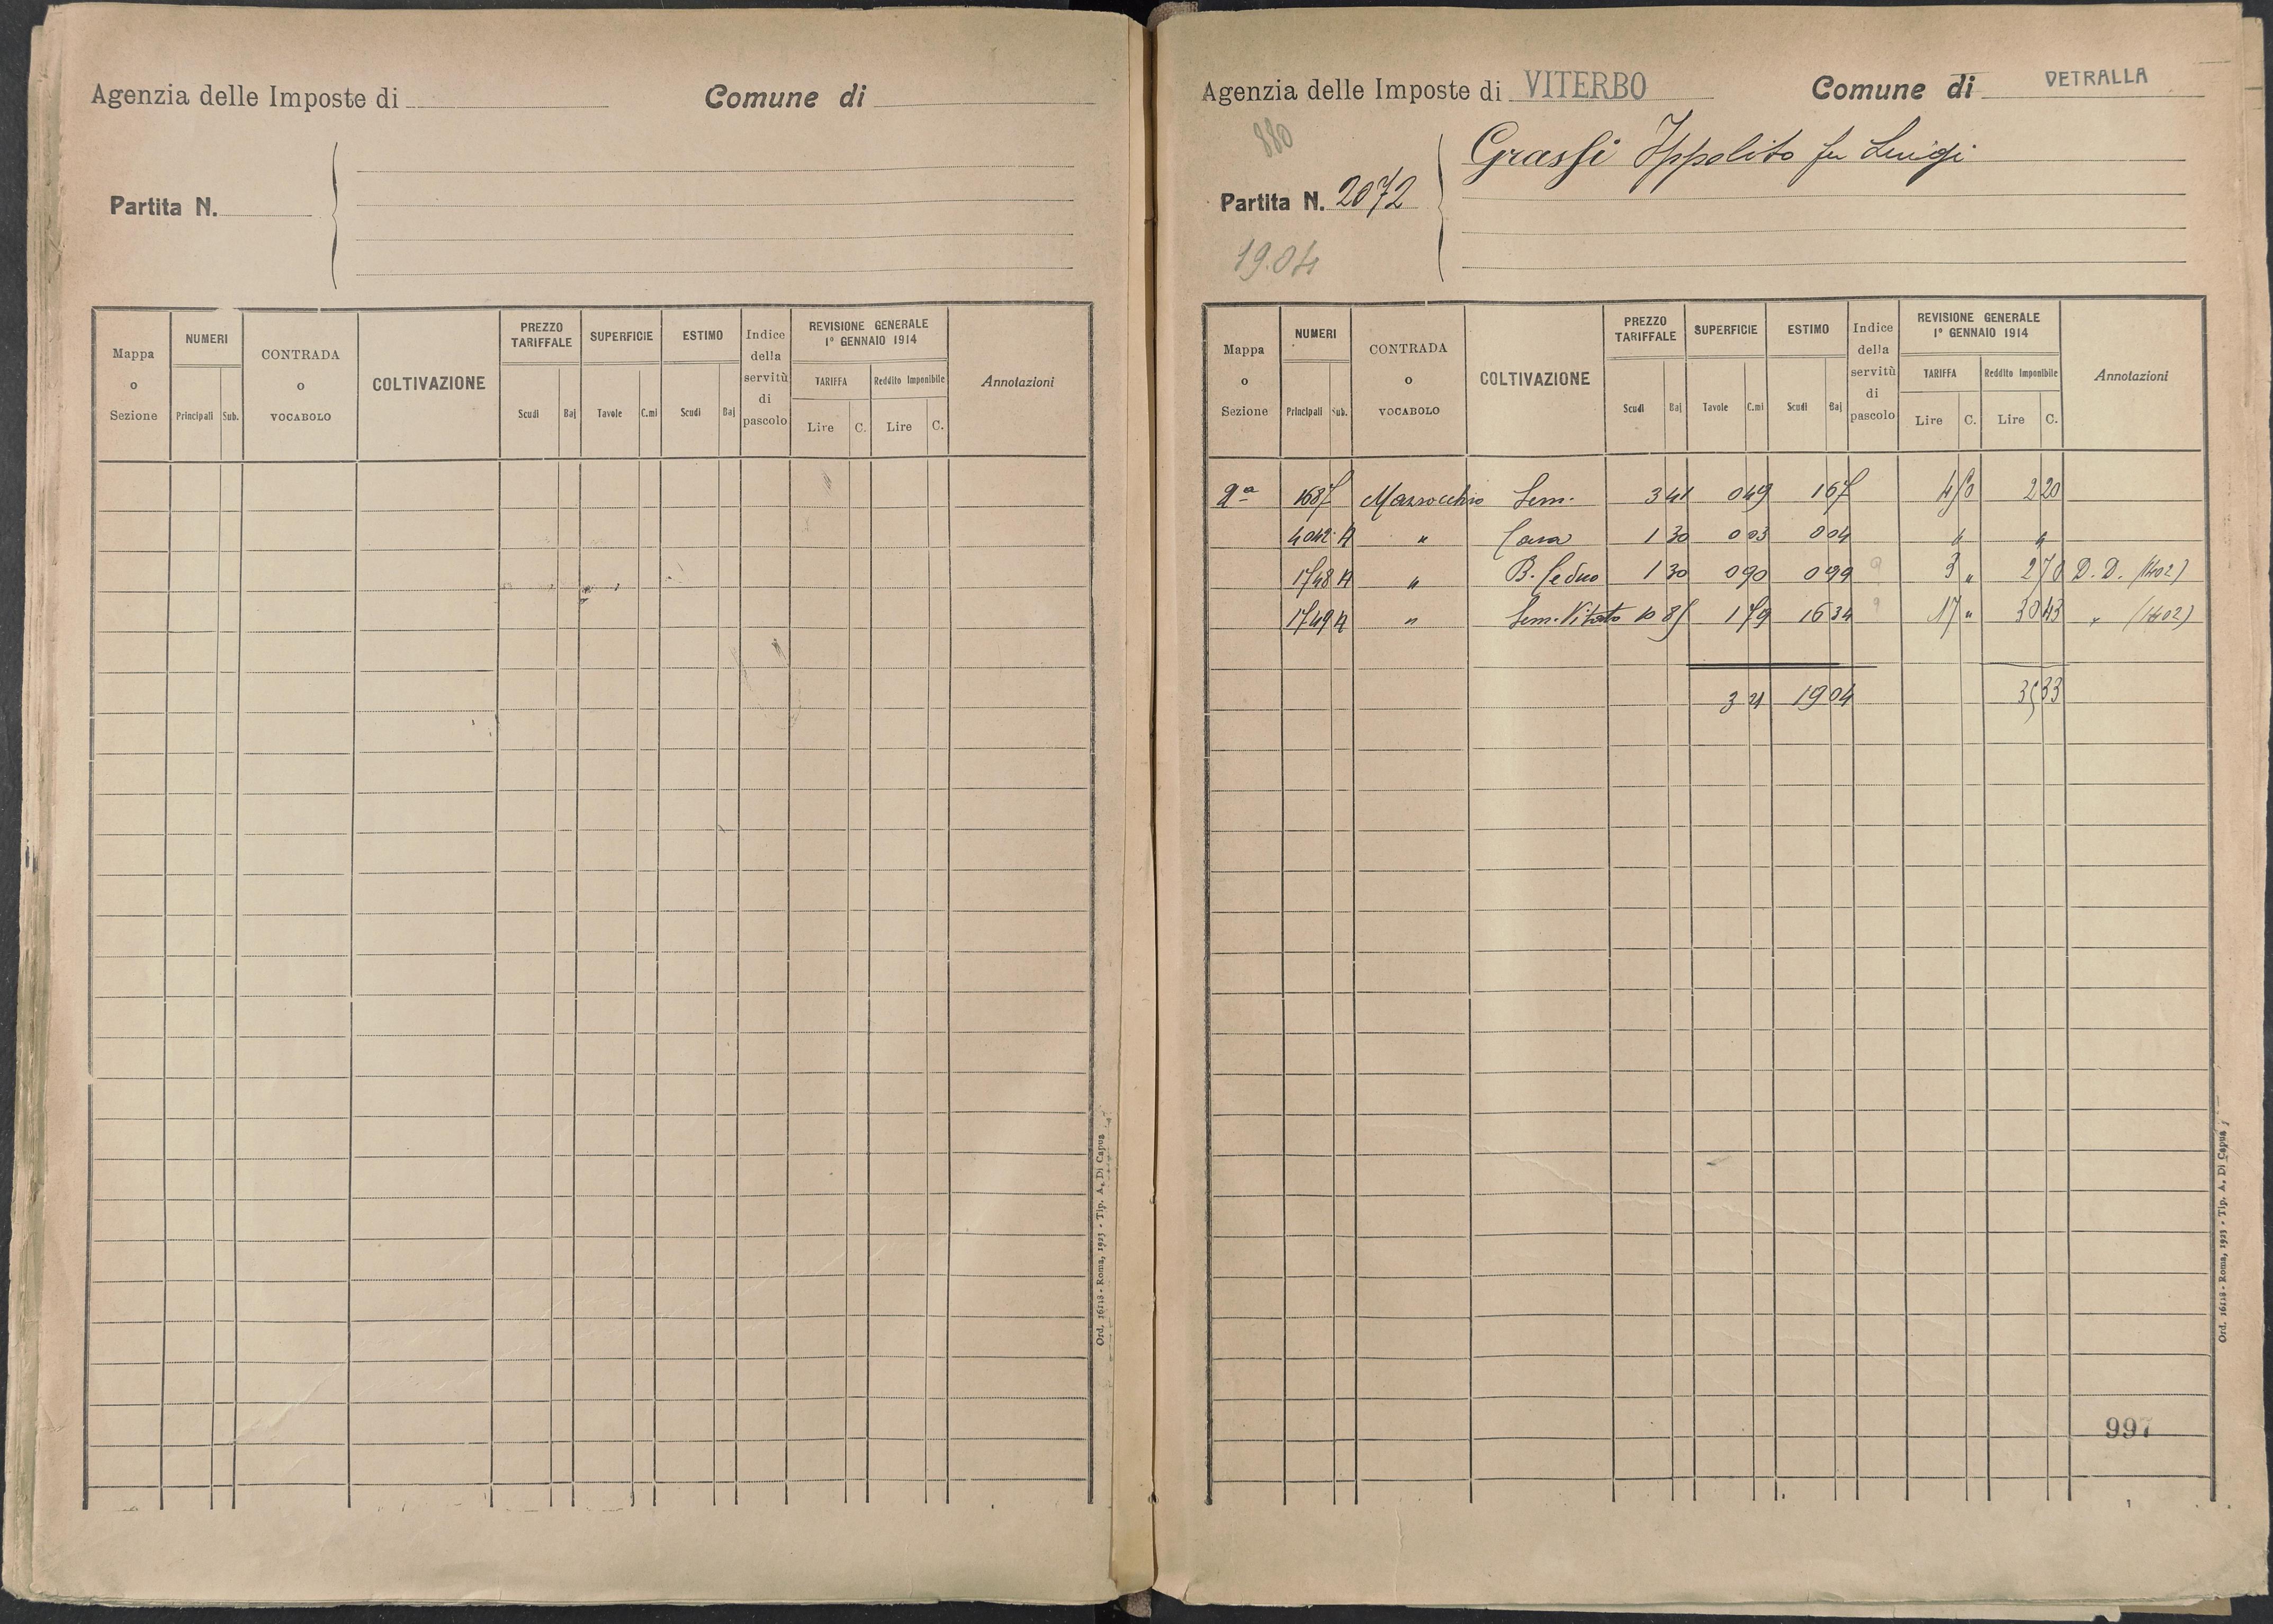 Agenzia delle Imposte di Comune di
Partita N.
Mappa o Sezione NUMERI Principali Sub. CONTRADA o VOCABOLO COLTIVAZIONE PREZZO TARIFFALE Scudi Baj SUPERFICIE Tavole C.mi ESTIMO Scudi Baj Indice della servitù di pascolo REVISIONE GENERALE 1° GENNAIO 1914 TARIFFA Lire C. Reddito Imponibile Lire C. Annotazioni
Ord. 16118 - Roma, 1923 - Tip. A. Di Capua
Agenzia delle Imposte di VITERBO Comune di VETRALLA
880
Grassi Ippolito fu Luigi
Partita N. 2072
19.04
Mappa o Sezione NUMERI Principali Sub. CONTRADA o VOCABOLO COLTIVAZIONE PREZZO TARIFFALE Scudi Baj SUPERFICIE Tavole C.mi ESTIMO Scudi Baj Indice della servitù di pascolo REVISIONE GENERALE 1° GENNAIO 1914 TARIFFA Lire C. Reddito Imponibile Lire C. Annotazioni
2a 1687 Mazzocchio Sem. 3 41 0 49 1 67 4 50 2 20
4042 A " Casa 1 30 0 03 0 04 " "
1748 A " B. Ceduo 1 30 0 90 0 99 9 3 " 2 70 D. D. (1402)
1749 A " Sem. Vitato 10 85 1 79 16 34 9 17 " 30 43 " (1402)
3 21 19 04 35 33
997
Ord. 16118 - Roma, 1923 - Tip. A. Di Capua